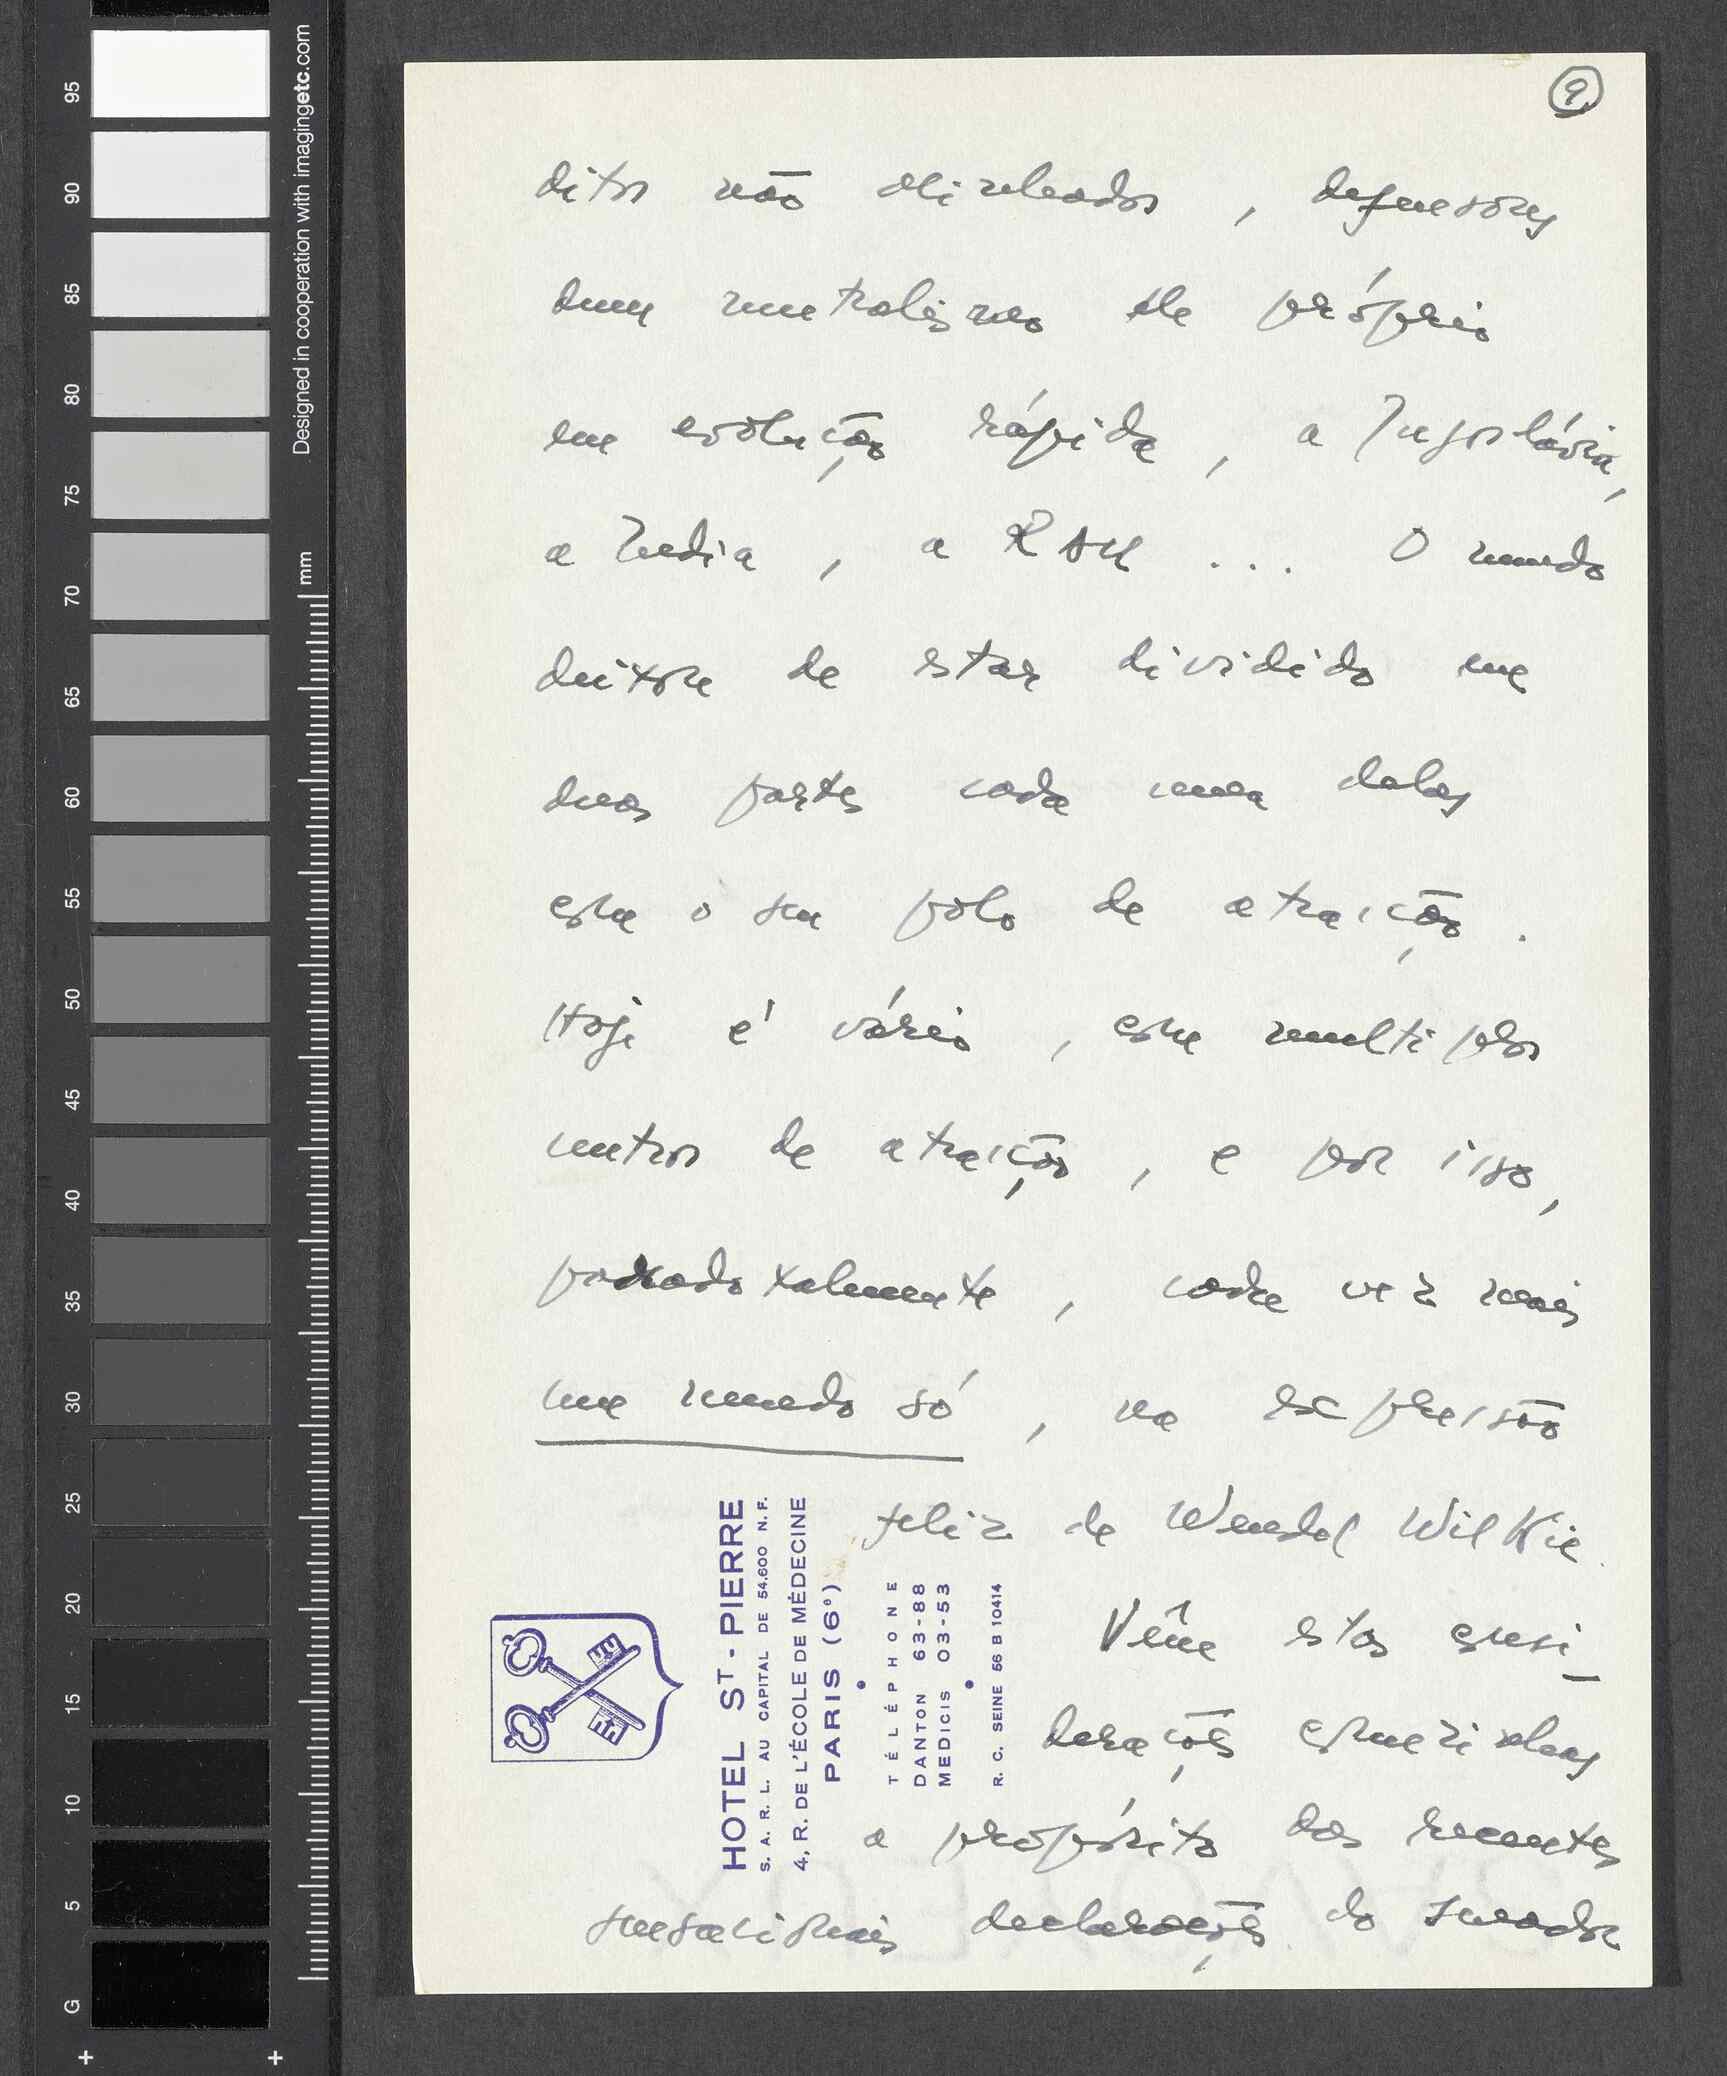 9
ditos não alinhados, defensores
dum neutralismo ele próprio
em evolução rápida, a Jugoslávia,
a India, a RAU ... O mundo
deixou de estar dividido em
duas partes cada uma delas
com o seu polo de atracção.
Hoje é vário, com multiplos
centros de atracção, e por isso,
paradoxalmente, cada vez mais
um mundo só, na expressão
feliz de Wendel Wilkie.
Vêm estas consi-
derações comezinhas
a propósito das recentes
sensacionais declarações do senador
HOTEL ST-PIERRE
S. A. R. L. AU CAPITAL DE 54.600 N. F.
4, R. DE L'ÉCOLE DE MÉDECINE
PARIS (6e)
TÉLÉPHONE
DANTON 63-88
MEDICIS 03-53
R. C. SEINE 56 B 10414
Designed in cooperation with imagingetc.com
mm
95
90
85
80
75
70
65
60
55
50
45
40
35
30
25
20
15
10
5
G